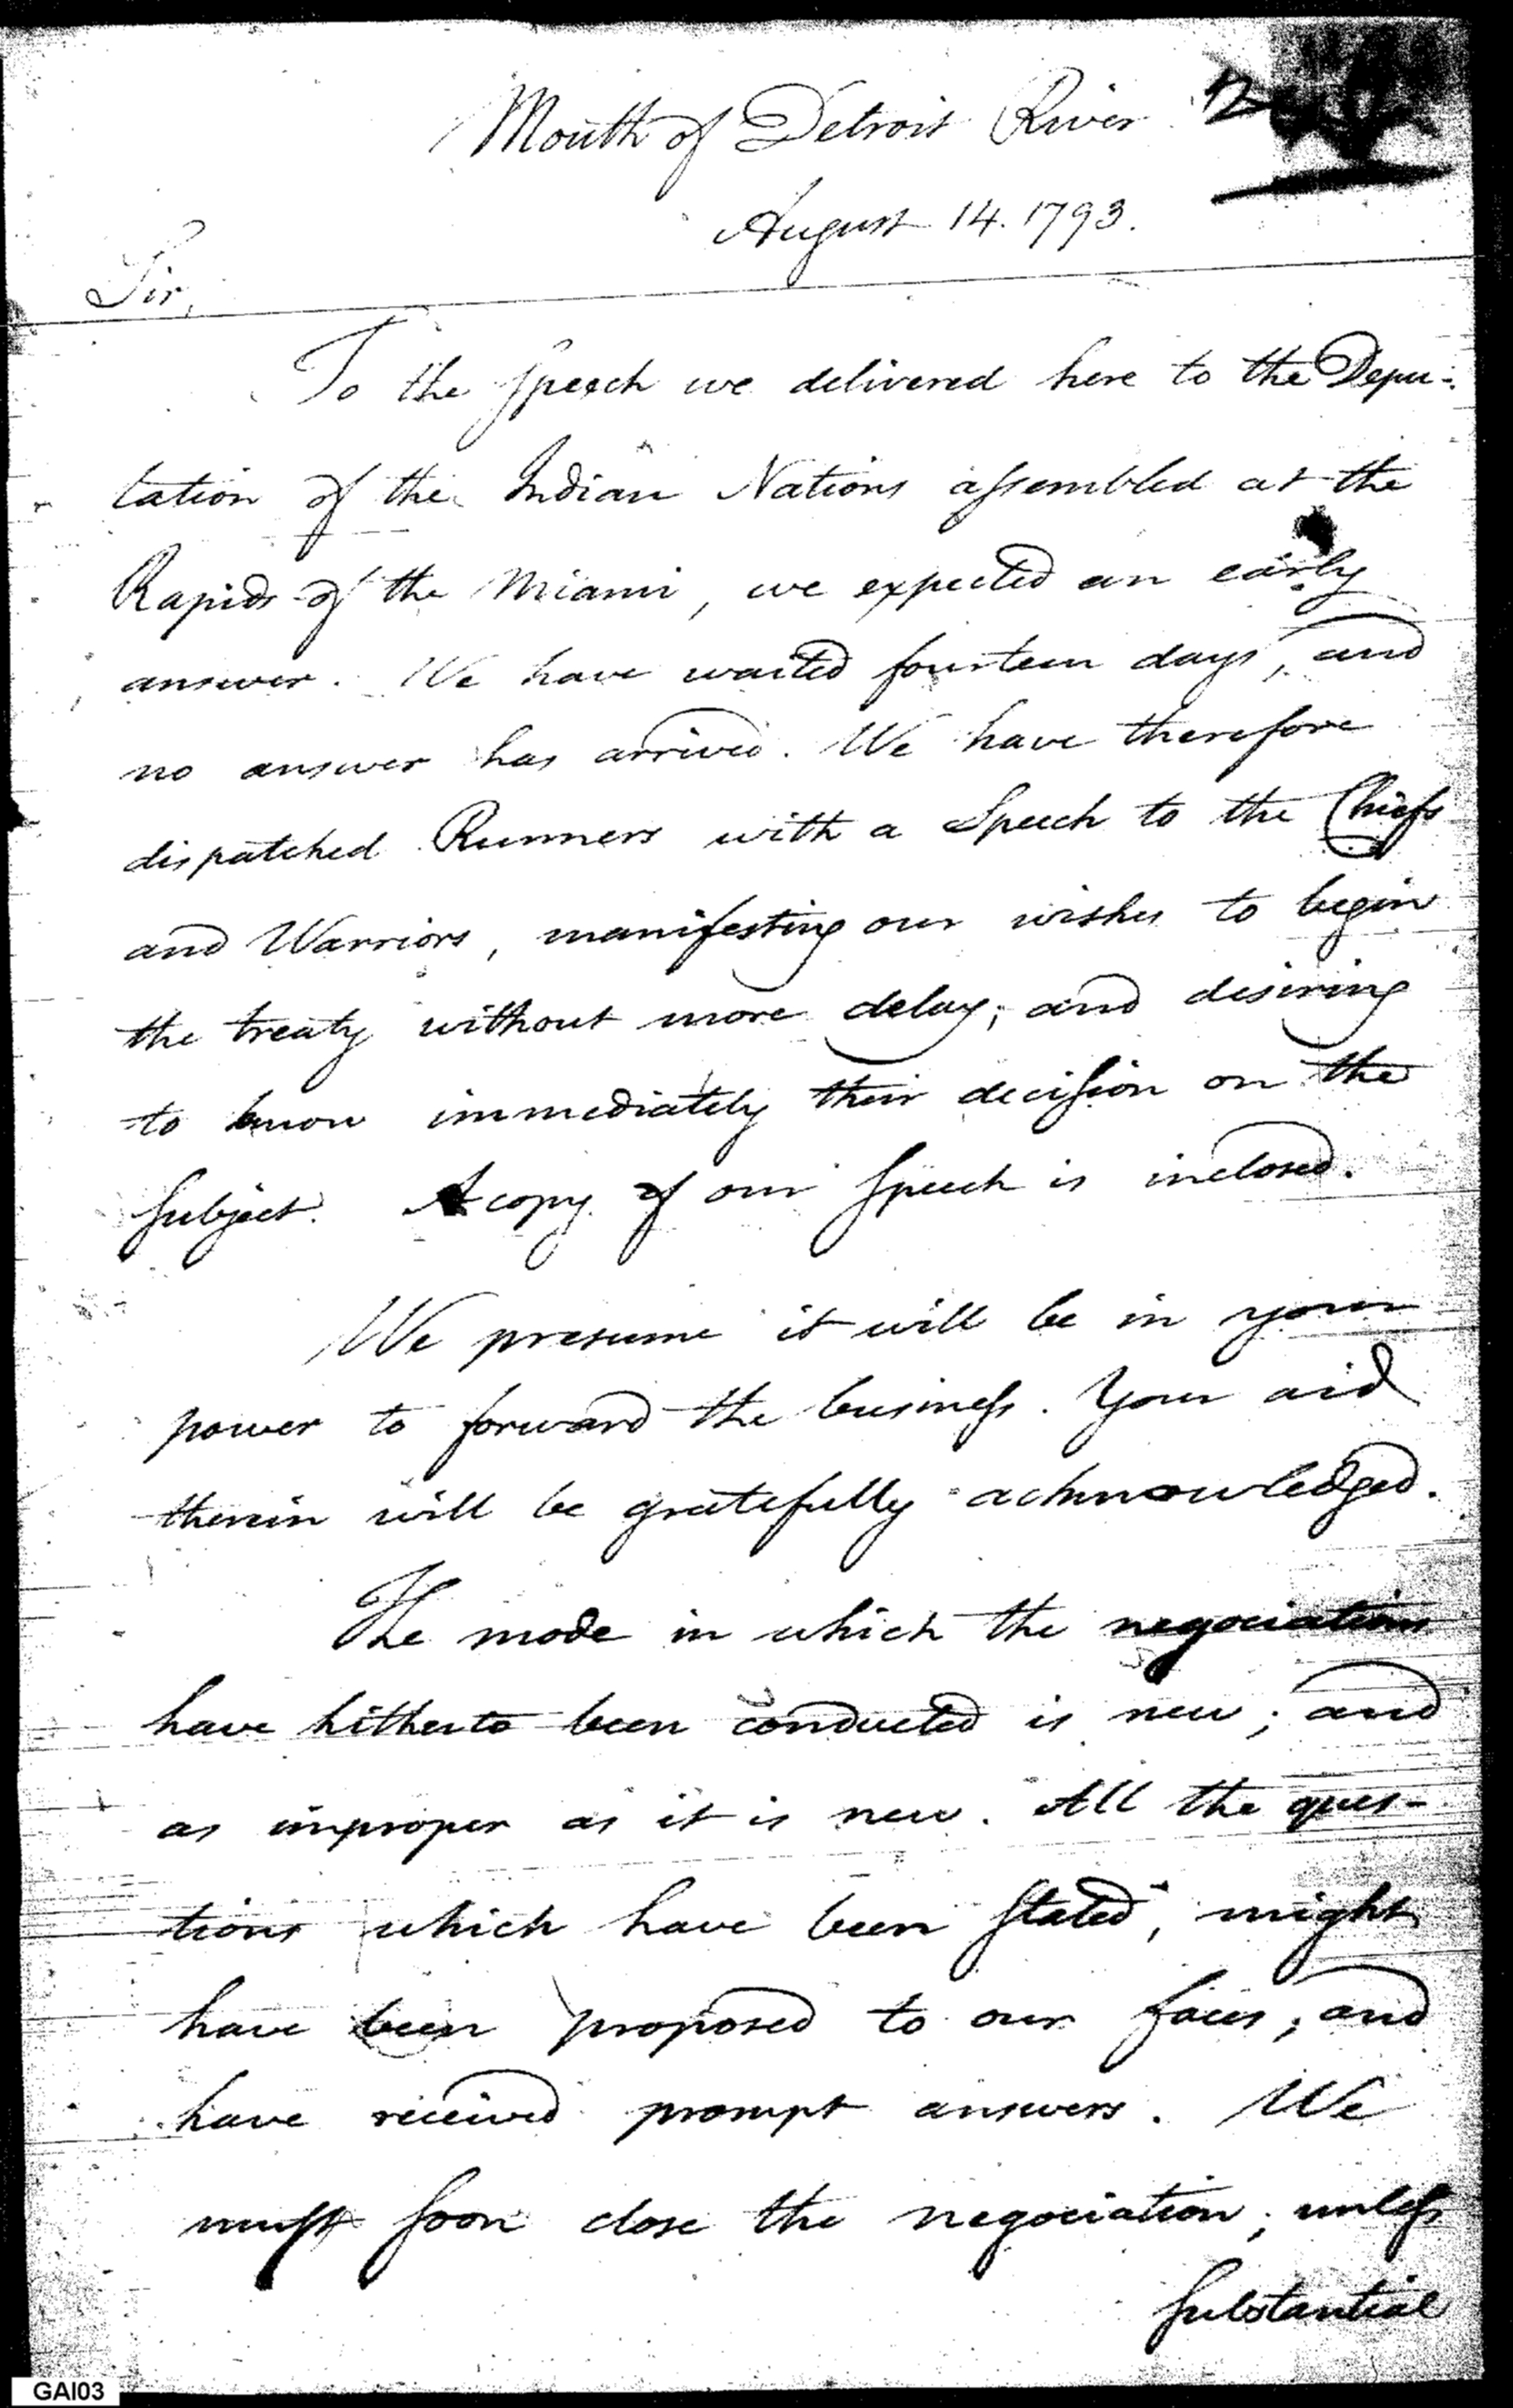 Mouth of Detroit River
August 14. 1793.
Sir,
To the Speech we delivered here to the Depu-
tation of the Indian Nations assembled at the
Rapids of the Miami, we expected an early
answer. We have waited fourteen days, and
no answer has arrived. We have therefore
dispatched Runners with a Speech to the Chiefs
and Warriors, manifesting our wishes to begin
the treaty without more delay; and desiring
to know immediately their decision on the
subject. A copy of our Speech is inclosed.
We presume it will be in your
power to forward the business. Your aid
therein will be gratefully acknowledged.
The mode in which the negociations
have hitherto been conducted is new; and
as improper as it is new. All the ques-
tions which have been stated, might
have been proposed to our faces; and
have received prompt answers. We
must soon close the negociation; unless
substantial
GAI03